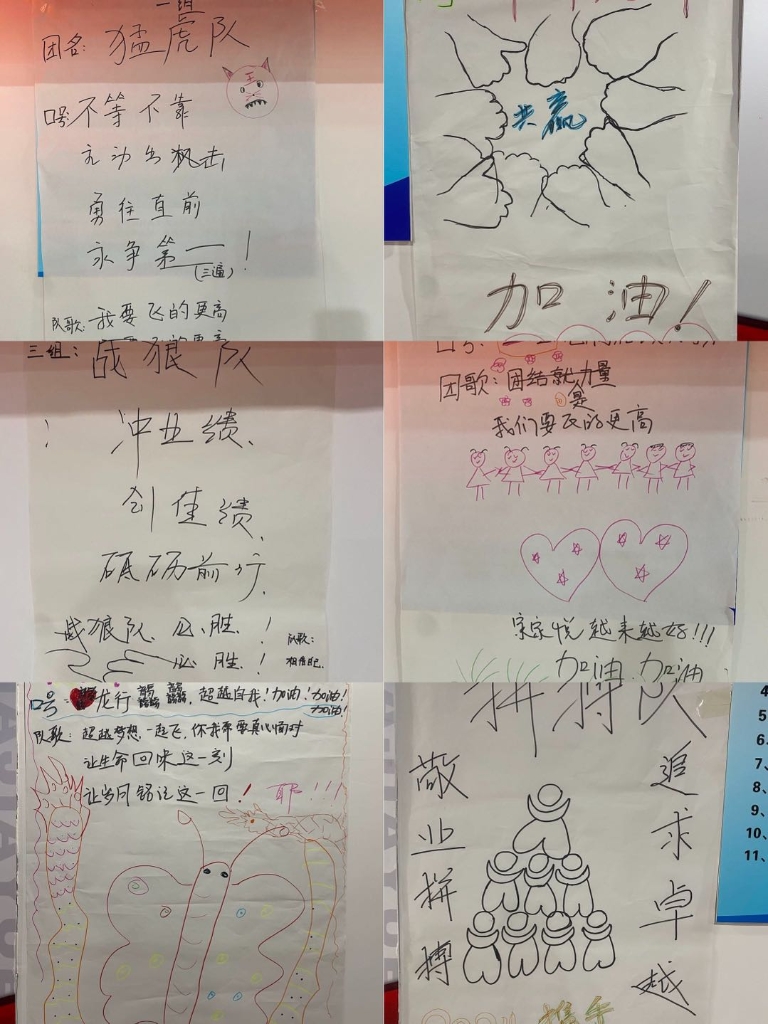 一组
团名：猛虎队
王
口号：不等不靠
主动出击
勇往直前
永争第一！
（三遍）
队歌：我要飞的更高
共赢
加油！
三组：战狼队
冲业绩、
创佳绩、
砥砺前行
战狼队、必胜！
必胜！
队歌：
相信自己
团歌：团结就是力量
我们要飞的更高
家家悦越来越好!!!
加油 加油
口号：龙行龘龘，超越自我！加油！加油！
加油！
队歌：超越梦想一起飞，你我需要真心面对
让生命回味这一刻
让岁月铭记这一回！耶！!!
拼搏队
敬业拼搏
追求卓越
携手
4
5
6、
7、
8、
9、
10、
11、